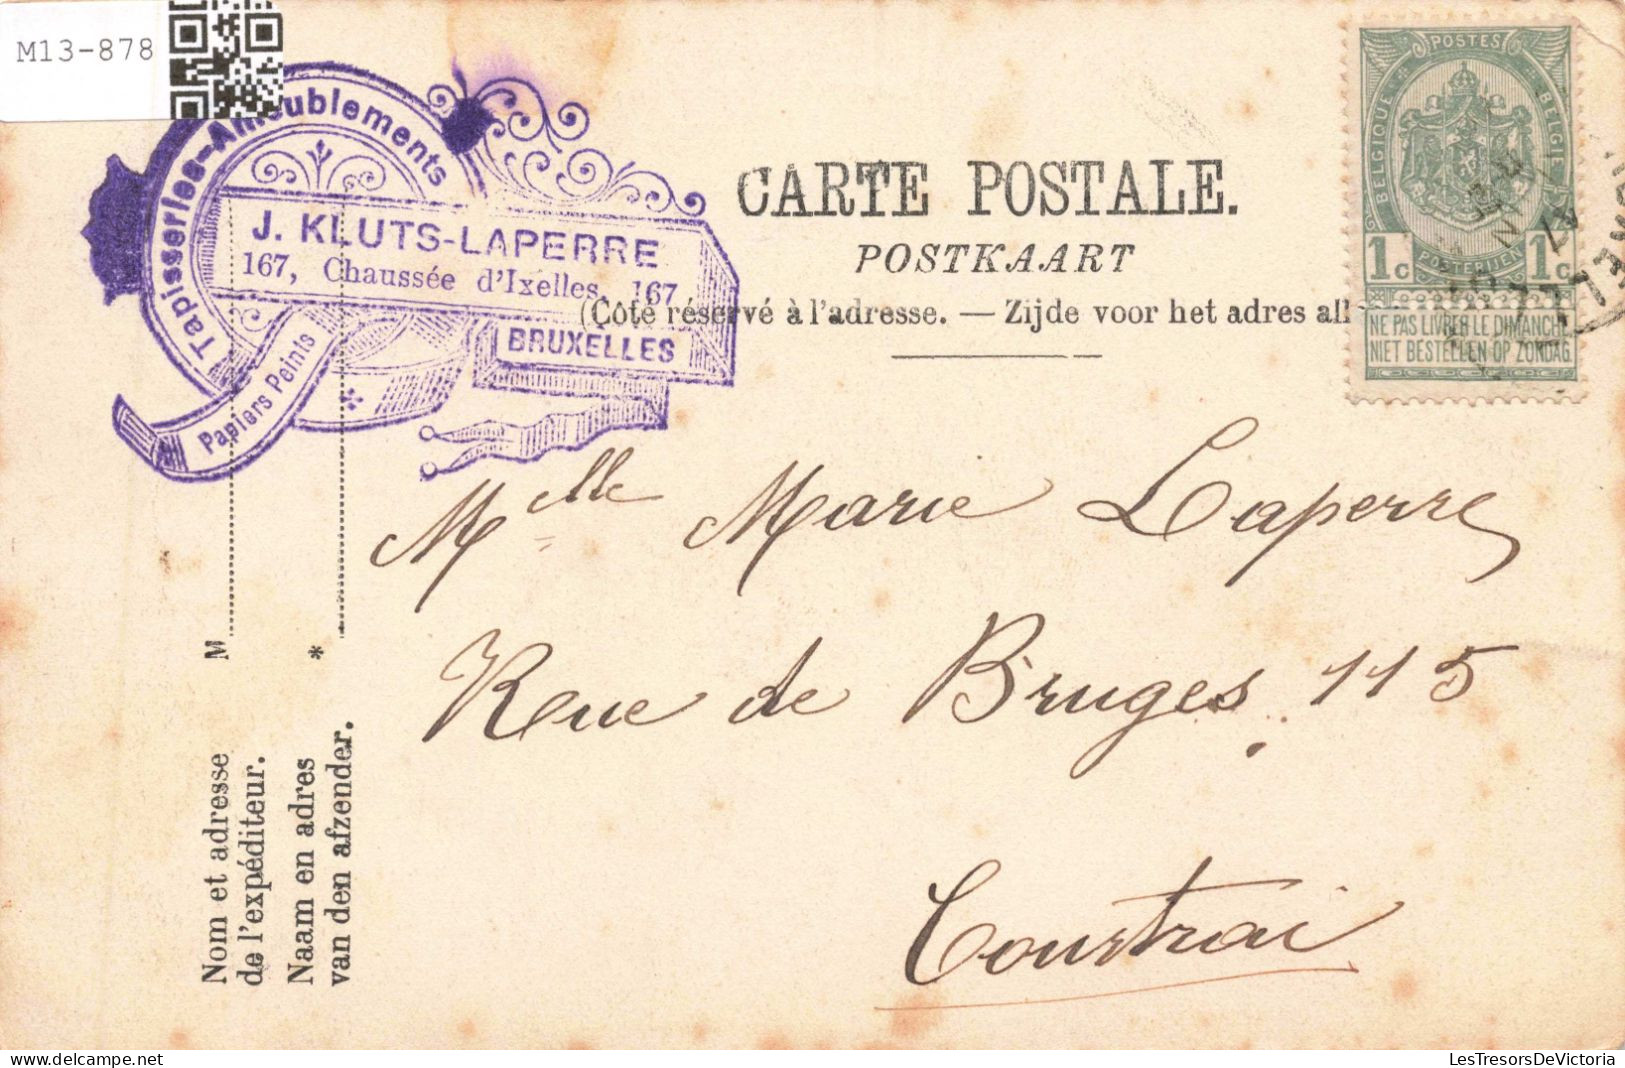 M13-878
Tapisseries-Ameublements
J. KLUTS-LAPERRE
167, Chaussée d'Ixelles, 167
BRUXELLES
Papiers Peints
CARTE POSTALE.
POSTKAART
(Côté réservé à l'adresse. — Zijde voor het adres all
POSTES
BELGIQUE
BELGIË
POSTERIJEN
1c 1c
NE PAS LIVRER LE DIMANCHE
NIET BESTELLEN OP ZONDAG
Mlle Marie Laperre
Rue de Bruges 115
Courtrai
M
*
Nom et adresse
de l'expéditeur.
Naam en adres
van den afzender.
LesTresorsDeVictoria